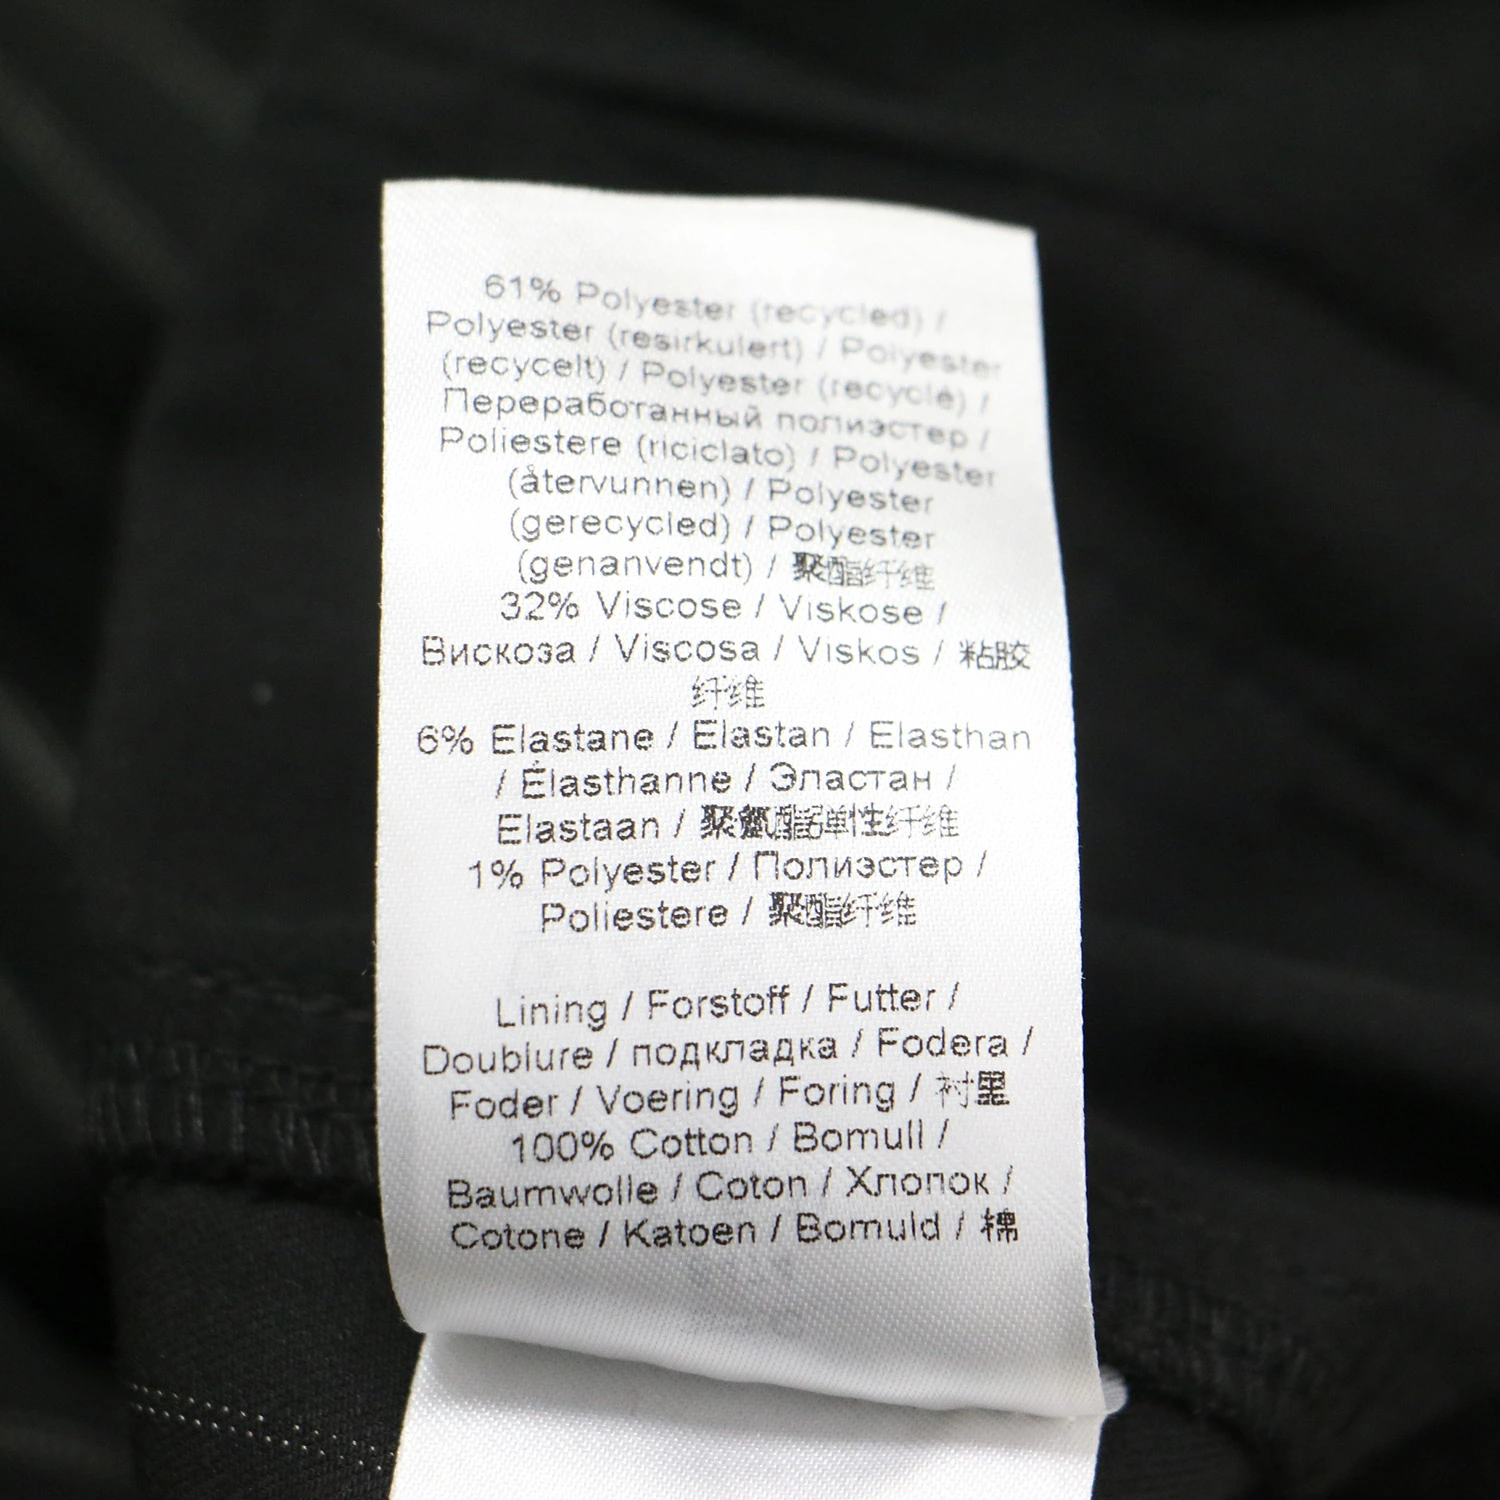 61% Polyester (recycled) /
Polyester (resirkulert) / Polyester
(recycelt) / Polyester (recyclé) /
Переработанный полиэстер /
Poliestere (riciclato) / Polyester
(återvunnen) / Polyester
(gerecycled) / Polyester
(genanvendt) / 聚酯纤维
32% Viscose / Viskose /
Вискоза / Viscosa / Viskos / 粘胶
纤维
6% Elastane / Elastan / Elasthan
/ Élasthanne / Эластан /
Elastaan / 聚氨酯弹性纤维
1% Polyester / Полиэстер /
Poliestere / 聚酯纤维
Lining / Forstoff / Futter /
Doublure / подкладка / Fodera /
Foder / Voering / Foring / 衬里
100% Cotton / Bomull /
Baumwolle / Coton / Хлопок /
Cotone / Katoen / Bomuld / 棉